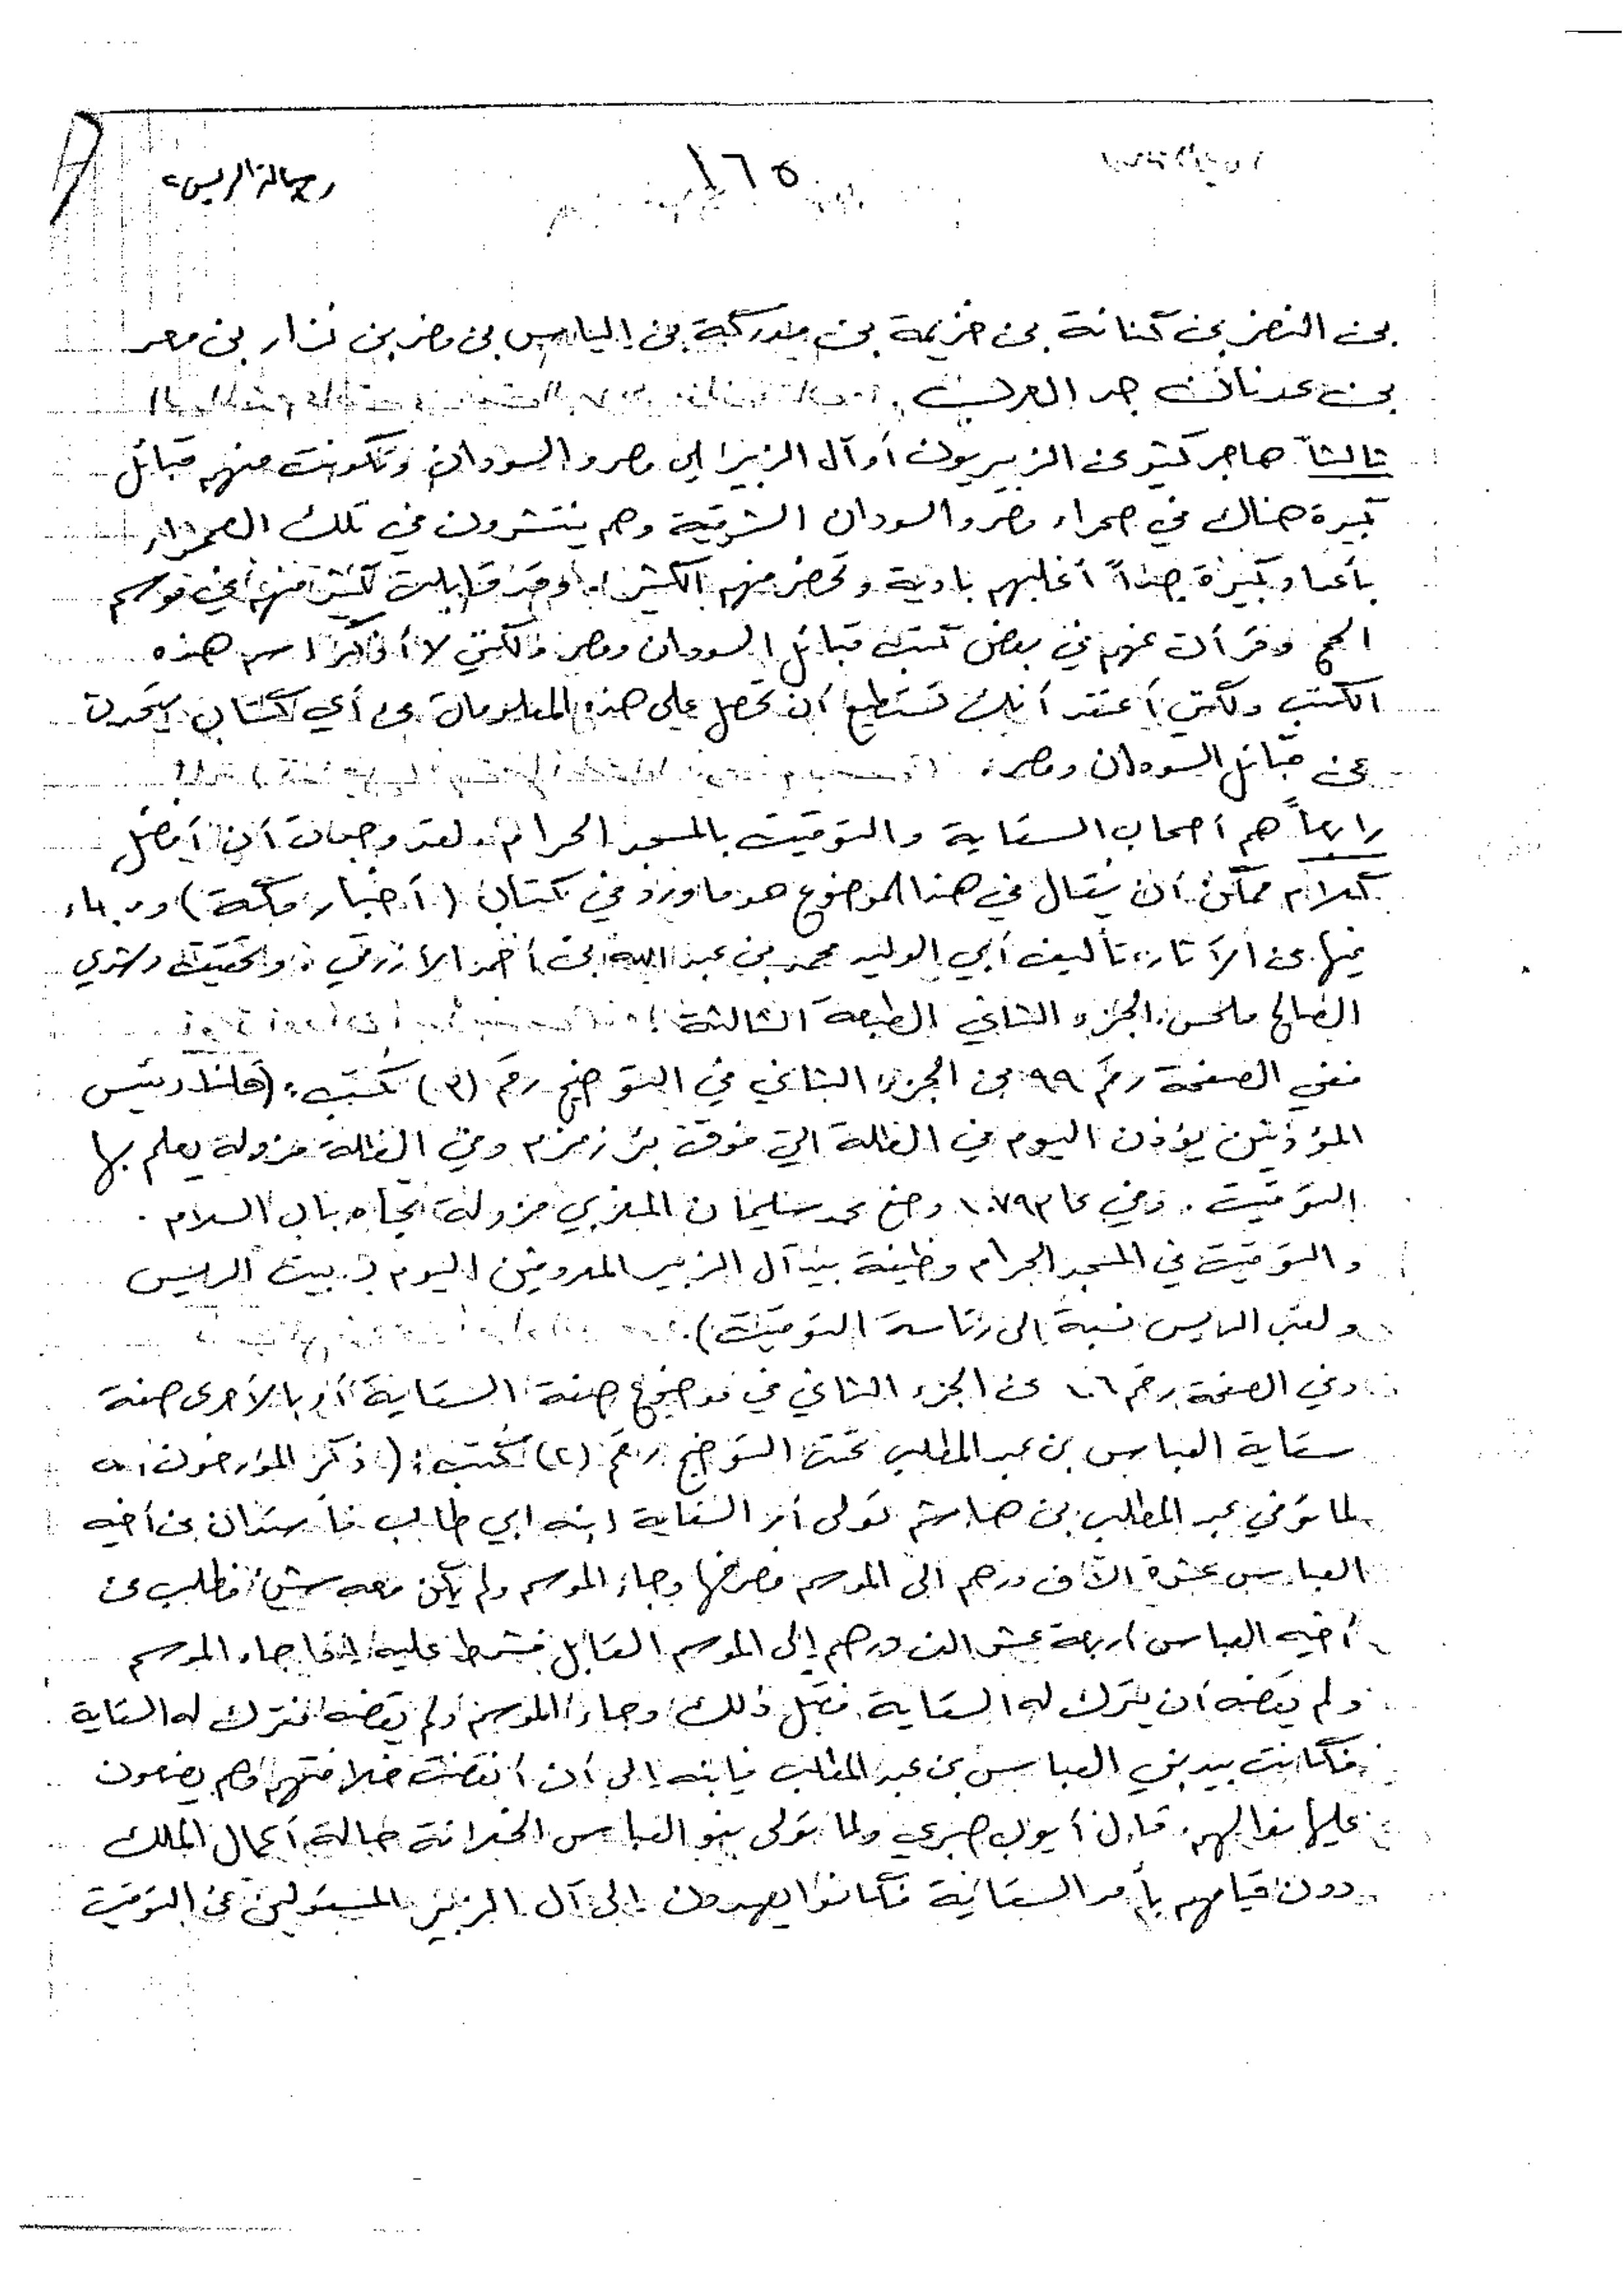 ١٦٥
رسالة الريس
بن النضر بن كنانة بن خزيمة بن مدركة بن الياس بن مضر بن نزار بن معد
بن عدنان جد العرب .
ثالثاً هاجر كثير من الزبيريون أو آل الزبير إلى مصر والسودان وتكونت منهم قبائل
كبيرة هناك في صحراء مصر والسودان الشرقية وهم ينتشرون في تلك الصحراء
بأعداد كبيرة جداً أغلبهم بادية وتحضر منهم الكثير . وقد قابلت كثير منهم في موسم
الحج وقرأت عنهم في بعض كتب قبائل السودان ومصر ولكني لا أذكر اسم هذه
الكتب ولكني أعتقد أنك تستطيع أن تحصل على هذه المعلومات من أي كتاب يتحدث
عن قبائل السودان ومصر .
رابعاً هم أصحاب السقاية والتوقيت بالمسجد الحرام . لقد وجدت أن أفضل
كلام ممكن أن يقال في هذا الموضوع هو ما ورد في كتاب ( أخبار مكة ) وما جاء
فيها من الآثار ، تأليف أبي الوليد محمد بن عبد الله بن أحمد الأزرقي . وتحقيق رشدي
الصالح ملحس . الجزء الثاني الطبعة الثالثة .
ففي الصفحة رقم ٩٩ من الجزء الثاني في التوضيح رقم (٣) كتب : (قلنا رئيس
المؤذنين يؤذن اليوم في الظلة التي فوق بئر زمزم وفي الظلة مزولة يعلم بها
التوقيت . وفي عام ١٠٧٩ وضع محمد سليمان المغربي مزولة تجاه باب السلام .
والتوقيت في المسجد الحرام وظيفة بيد آل الزبير المعروفين اليوم بـ بيت الريس
ولقب الريس نسبة إلى رئاسة التوقيت) .
وفي الصفحة رقم ١٠٦ من الجزء الثاني في موضوع صفة السقاية أو بالأحرى صفة
سقاية العباس بن عبد المطلب تحت التوضيح رقم (٢) كتب : ( ذكر المؤرخون أنه
لما توفي عبد المطلب بن هاشم تولى أمر السقاية ابنه ابي طالب فأستدان من أخيه
العباس عشرة الآف درهم الى الموسم فصرفها وجاء الموسم ولم يكن معه شيء فطلب من
أخيه العباس أربعة عشر الف درهم إلى الموسم القابل فشرط عليه إذا جاء الموسم
ولم يقضه أن يترك له السقاية فقبل ذلك وجاء الموسم ولم يقضه فترك له السقاية
فكانت بيد بني العباس بن عبد المطلب إلى أن انقضت خلافتهم وهم يضعون
عليها . قال أيوب صبري ولما تولى بنو العباس الخلافة حالت أعمال الملك
دون قيامهم بأمر السقاية فكانوا يعهدون إلى آل الزبير المسئولين عن التوقيت